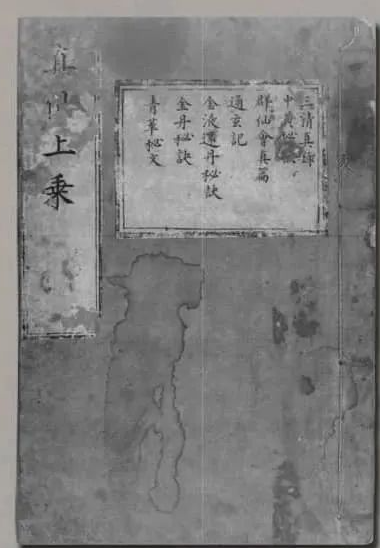 三清真
中 秘
群仙會真篇
通玄記
金液還丹秘訣
金丹秘訣
青華秘文
上乘